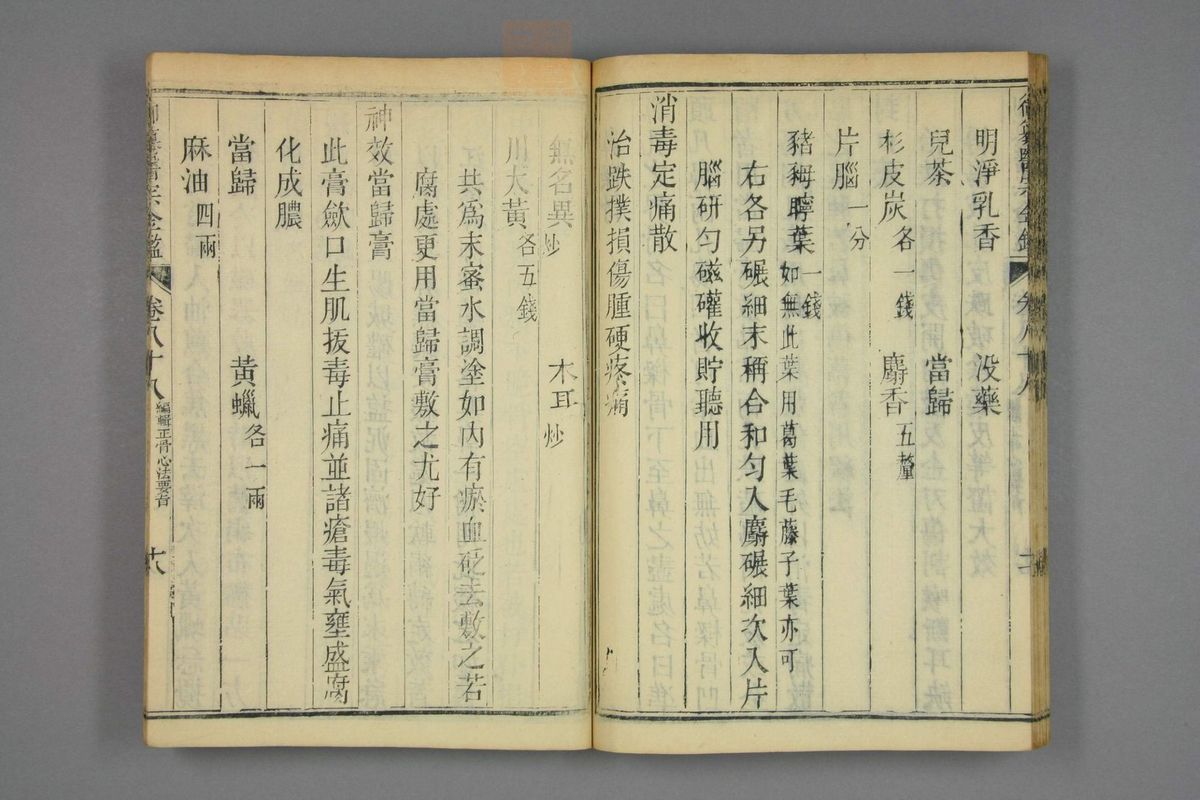 明淨乳香 没藥
兒茶 當歸
杉皮炭各一錢 麝香五釐
片腦一分
豬聹葉一錢如無此葉用葛葉毛藤子葉亦可
右各另碾細末稱合和勻入麝碾細次入片
腦研勻磁礶收貯聽用
消毒定痛散
治跌撲損傷腫硬疼痛
無名異炒 木耳炒
川大黃各五錢
共為末蜜水調塗如內有瘀血砭去敷之若
腐處更用當歸膏敷之尤好
神效當歸膏
此膏歛口生肌拔毒止痛並諸瘡毒氣壅盛腐
化成膿
當歸 黃蠟各一兩
麻油四兩
御纂醫宗金鑑 卷八十八 編輯正骨心法要旨